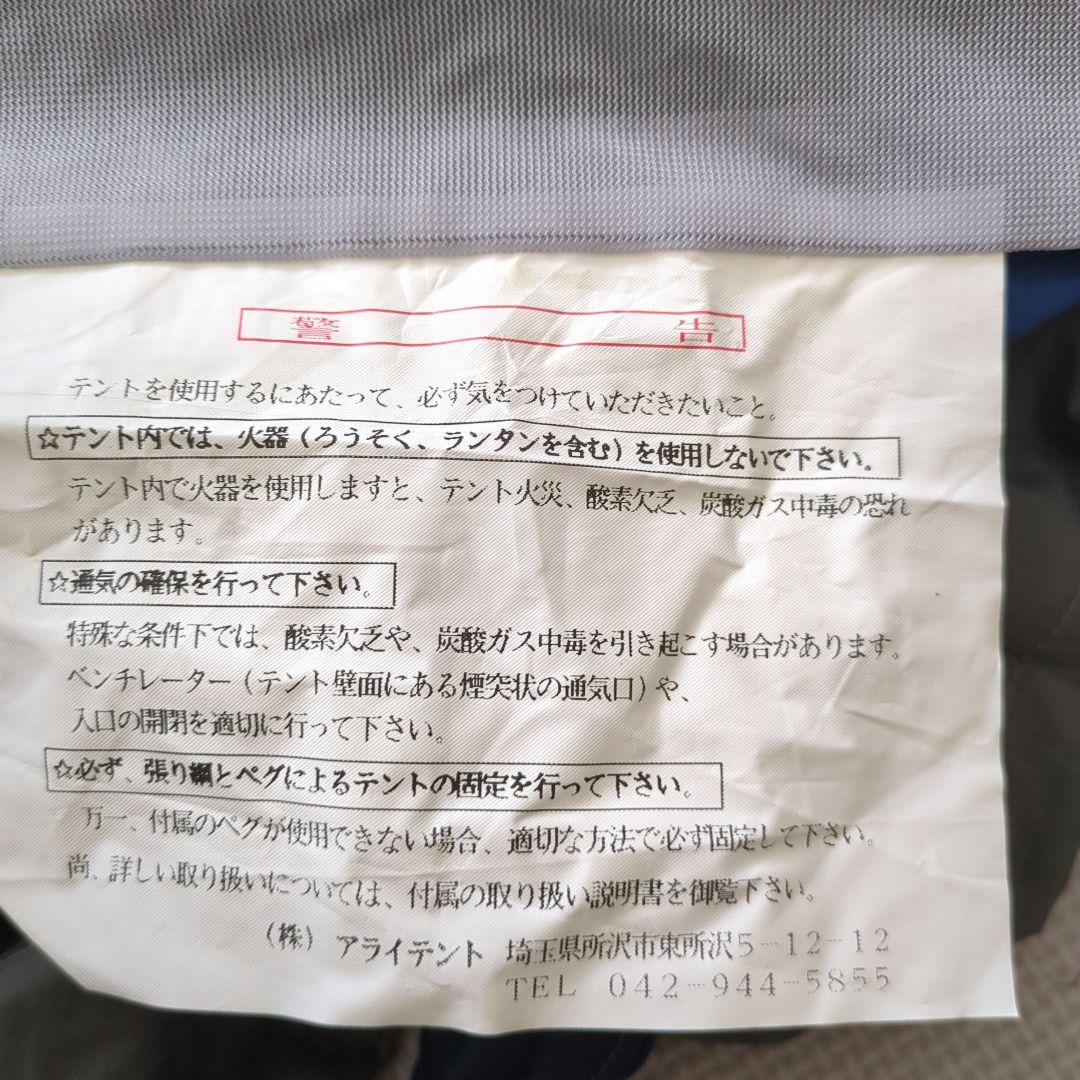 警告
テントを使用するにあたって、必ず気をつけていただきたいこと。
☆テント内では、火器(ろうそく、ランタンを含む)を使用しないで下さい。
テント内で火器を使用しますと、テント火災、酸素欠乏、炭酸ガス中毒の恐れ
があります。
☆通気の確保を行って下さい。
特殊な条件下では、酸素欠乏や、炭酸ガス中毒を引き起こす場合があります。
ベンチレーター(テント壁面にある煙突状の通気口)や、
入口の開閉を適切に行って下さい。
☆必ず、張り綱とペグによるテントの固定を行って下さい。
万一、付属のペグが使用できない場合、適切な方法で必ず固定して下さい。
尚、詳しい取り扱いについては、付属の取り扱い説明書を御覧下さい。
(株) アライテント 埼玉県所沢市東所沢5-12-12
TEL 042-944-5855